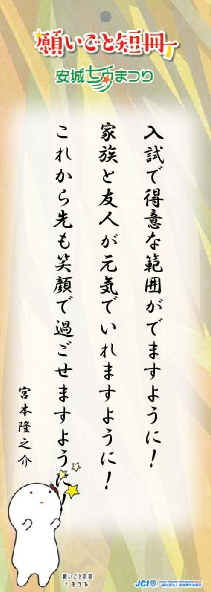 願いごと短冊
安城七夕まつり
入試で得意な範囲がでますように!
家族と友人が元気でいれますように!
これから先も笑顔で過ごせますよう
宮本隆之介
願いごと短冊
JCI